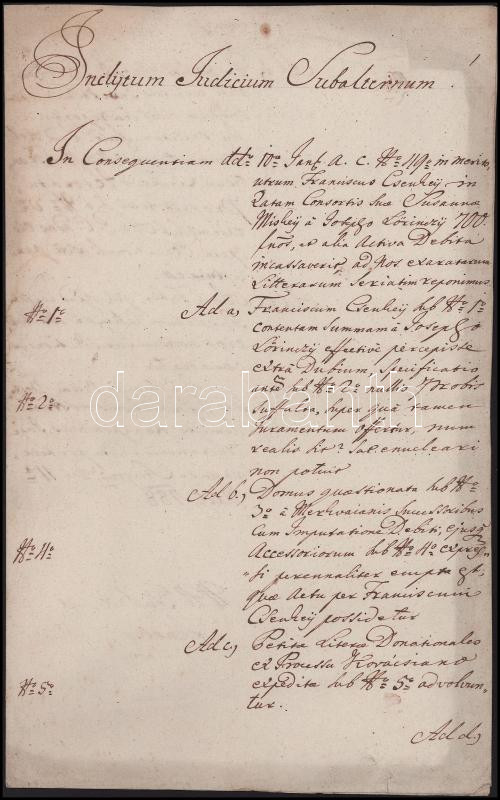 1
Inclytum Judicium Subalternum
In Consequentiam dto 10a Jan. A. C. No 119o in merito,
utrum Franciscus Csenkeij in
Ratam Consortis suae Susanna
Miskeij à Josepho Lörinczij 700.
fnos, et alia Activa Debita
incassaverit, ad Nos exaratarum
Litterarum Seriatim reponimus.
No 1o Ad a, Franciscum Csenkeij sub No 1o
contentam Summam à Josepho
Lörinczij effective percepisse
extra Dubium, Specificatio
ante sub No 2o nullis Probis
No 2o Suffulta, super qua tamen
Juramentum offertur, num
realis sit? enucleari
non potuit
Ad b, Domus quaestionata sub No
3o à Successoribus
Cum Imputatione Debiti, ejusq
No 4o Accessoriorum sub No 4o expres,
si perennaliter empta est,
quae Actu per Franciscum
Csenkeij possidetur
Ad c, Petita Litera Donationales
ex Processu Kovácsiano
No 5o expedita sub No 5o advolvun,
tur.
Ad d,
darabanth